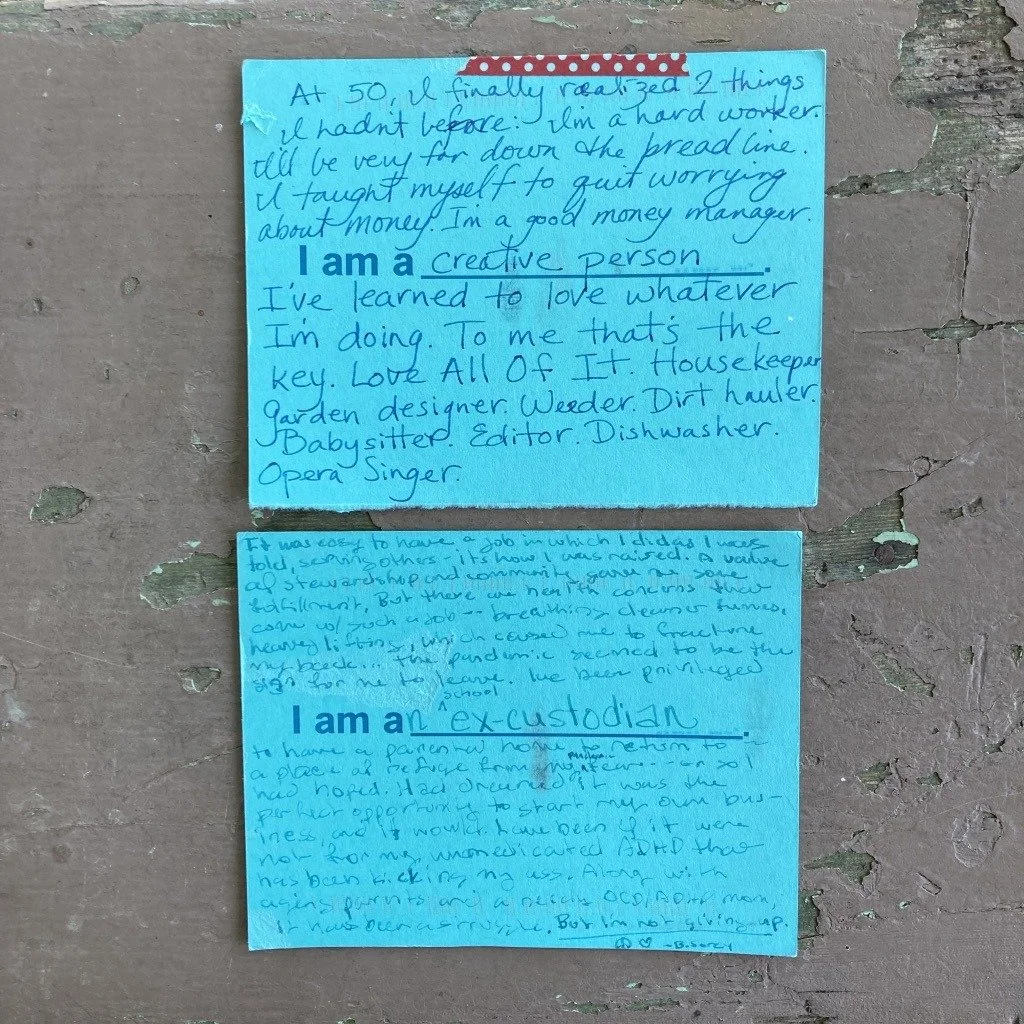 At 50, I finally realized 2 things
I hadn't before: I'm a hard worker.
I'll be very far down the breadline.
I taught myself to quit worrying
about money. I'm a good money manager.
I am a creative person.
I've learned to love whatever
I'm doing. To me that's the
key. Love All Of It. Housekeeper
garden designer. Weeder. Dirt hauler.
Babysitter. Editor. Dishwasher.
Opera Singer.
It was easy to have a job in which I did as I was
told, serving others. It's how I was raised. A value
of stewardship and community gave me some
fulfillment. But there are health concerns that
come w/ such a job -- breathing cleaner fumes,
heavy lifting, which caused me to fracture
my back... the pandemic seemed to be the
sign for me to leave. I've been privileged
school
I am an ^ ex-custodian.
to have a parental home to return to --
a place of refuge from my fear -- or so I
had hoped. Had dreamed it was the
perfect opportunity to start my own bus-
iness, and it would have been if it were
not for my unmedicated ADHD that
has been kicking my ass. Along with
aging parents and a needy OCD/ADHD mom,
it has been a struggle. But I'm not giving up.